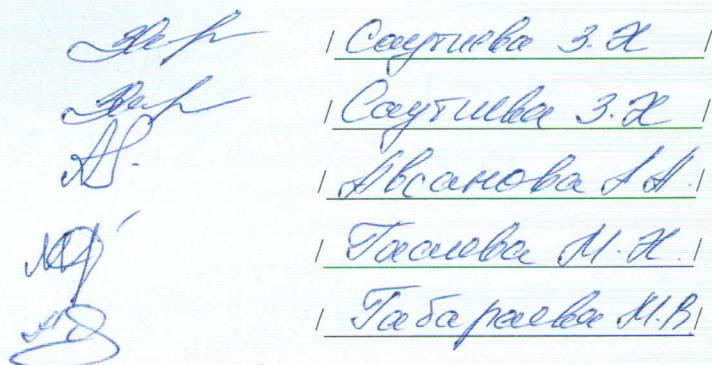 / Саутиева З.Х /
/ Саутиева З.Х /
/ Авсанова А.А. /
/ Гасиева М.Х. /
/ Габараева М.В. /